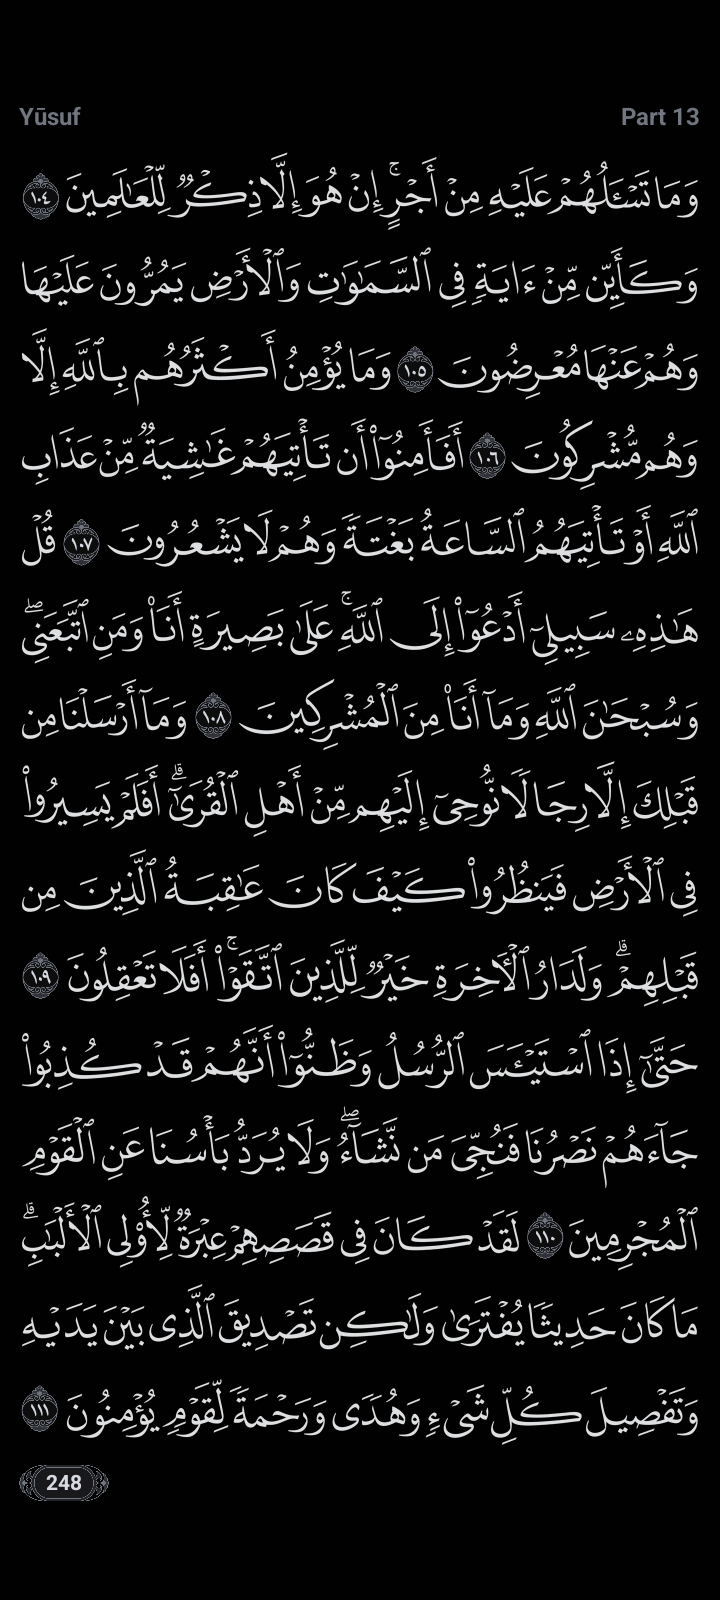 Yūsuf
Part 13
وَمَا تَسْـَٔلُهُمْ عَلَيْهِ مِنْ أَجْرٍ ۚ إِنْ هُوَ إِلَّا ذِكْرٌ لِّلْعَـٰلَمِينَ ١٠٤
وَكَأَيِّن مِّنْ ءَايَةٍ فِى ٱلسَّمَـٰوَٰتِ وَٱلْأَرْضِ يَمُرُّونَ عَلَيْهَا
وَهُمْ عَنْهَا مُعْرِضُونَ ١٠٥ وَمَا يُؤْمِنُ أَكْثَرُهُم بِٱللَّهِ إِلَّا
وَهُم مُّشْرِكُونَ ١٠٦ أَفَأَمِنُوٓا۟ أَن تَأْتِيَهُمْ غَـٰشِيَةٌ مِّنْ عَذَابِ
ٱللَّهِ أَوْ تَأْتِيَهُمُ ٱلسَّاعَةُ بَغْتَةً وَهُمْ لَا يَشْعُرُونَ ١٠٧ قُلْ
هَـٰذِهِۦ سَبِيلِىٓ أَدْعُوٓا۟ إِلَى ٱللَّهِ ۚ عَلَىٰ بَصِيرَةٍ أَنَا۠ وَمَنِ ٱتَّبَعَنِى ۖ
وَسُبْحَـٰنَ ٱللَّهِ وَمَآ أَنَا۠ مِنَ ٱلْمُشْرِكِينَ ١٠٨ وَمَآ أَرْسَلْنَا مِن
قَبْلِكَ إِلَّا رِجَالًا نُّوحِىٓ إِلَيْهِم مِّنْ أَهْلِ ٱلْقُرَىٰٓ ۗ أَفَلَمْ يَسِيرُوا۟
فِى ٱلْأَرْضِ فَيَنظُرُوا۟ كَيْفَ كَانَ عَـٰقِبَةُ ٱلَّذِينَ مِن
قَبْلِهِمْ ۗ وَلَدَارُ ٱلْـَٔاخِرَةِ خَيْرٌ لِّلَّذِينَ ٱتَّقَوْا۟ ۚ أَفَلَا تَعْقِلُونَ ١٠٩
حَتَّىٰٓ إِذَا ٱسْتَيْـَٔسَ ٱلرُّسُلُ وَظَنُّوٓا۟ أَنَّهُمْ قَدْ كُذِبُوا۟
جَآءَهُمْ نَصْرُنَا فَنُجِّىَ مَن نَّشَآءُ ۖ وَلَا يُرَدُّ بَأْسُنَا عَنِ ٱلْقَوْمِ
ٱلْمُجْرِمِينَ ١١٠ لَقَدْ كَانَ فِى قَصَصِهِمْ عِبْرَةٌ لِّأُو۟لِى ٱلْأَلْبَـٰبِ ۗ
مَا كَانَ حَدِيثًا يُفْتَرَىٰ وَلَـٰكِن تَصْدِيقَ ٱلَّذِى بَيْنَ يَدَيْهِ
وَتَفْصِيلَ كُلِّ شَىْءٍ وَهُدًى وَرَحْمَةً لِّقَوْمٍ يُؤْمِنُونَ ١١١
248